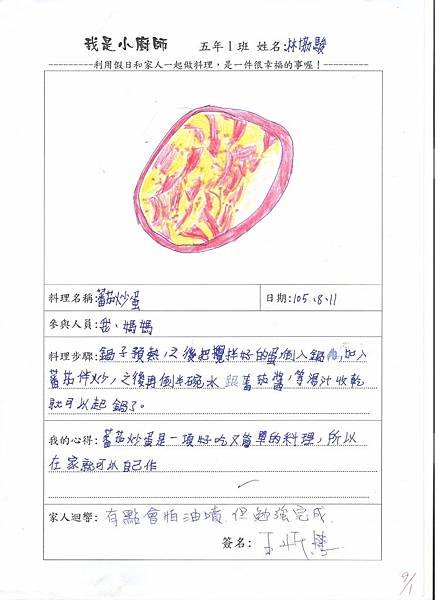 我是小廚師 五年1班 姓名:林敬駿
利用假日和家人一起做料理,是一件很幸福的事喔!
料理名稱:蕃茄炒蛋 日期:105.8.11
參與人員:我、媽媽
料理步驟:鍋子預熱,之後把攪拌好的蛋倒入鍋內,加入
蕃茄伴炒,之後再倒半碗水跟蕃茄醬,等湯汁收乾
就可以起鍋了。
我的心得:蕃茄炒蛋是一項好吃又簡單的料理,所以
在家就可以自己作
家人迴響:有點會怕油墳,但勉強完成.
簽名:王
9/1